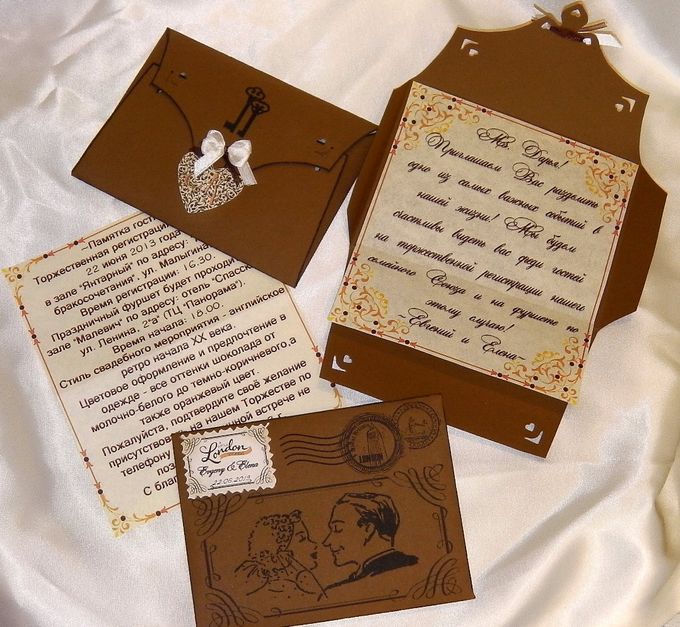 Ms. Дарья!
Приглашаем Вас разделить
одно из самых важных событий в
нашей жизни! Мы будем
счастливы видеть вас среди гостей
на торжественной регистрации нашего
семейного Союза и на фуршете по
этому случаю!
~Евгений и Елена~
~Памятка гост
Торжественная регистраци
22 июня 2013 года
в зале "Янтарный" по адресу:
бракосочетания", ул. Малыгина
Время регистрации: 16.30.
Праздничный фуршет будет проходи
зале "Малевич" по адресу: отель "Спасск
ул. Ленина, 2"в" (ТЦ "Панорама").
Время начала: 18.00.
Стиль свадебного мероприятия - английское
ретро начала XX века.
Цветовое оформление и предпочтение в
одежде - все оттенки шоколада от
молочно-белого до темно-коричневого, а
также оранжевый цвет.
Пожалуйста, подтвердите своё желание
присутствова на нашем Торжестве по
телефону чной встрече не
поз
С благ
London
Evgeny & Elena
22.06.2013